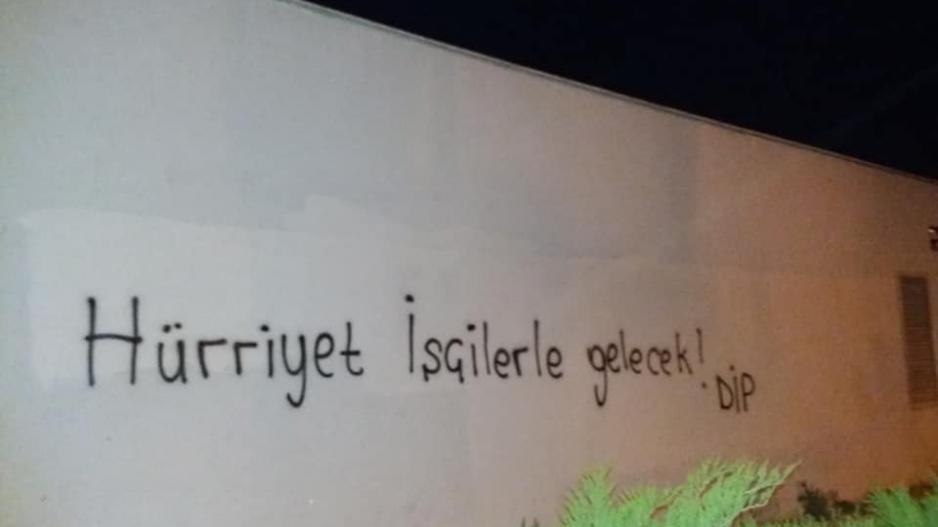 Hürriyet İşçilerle gelecek!
DİP